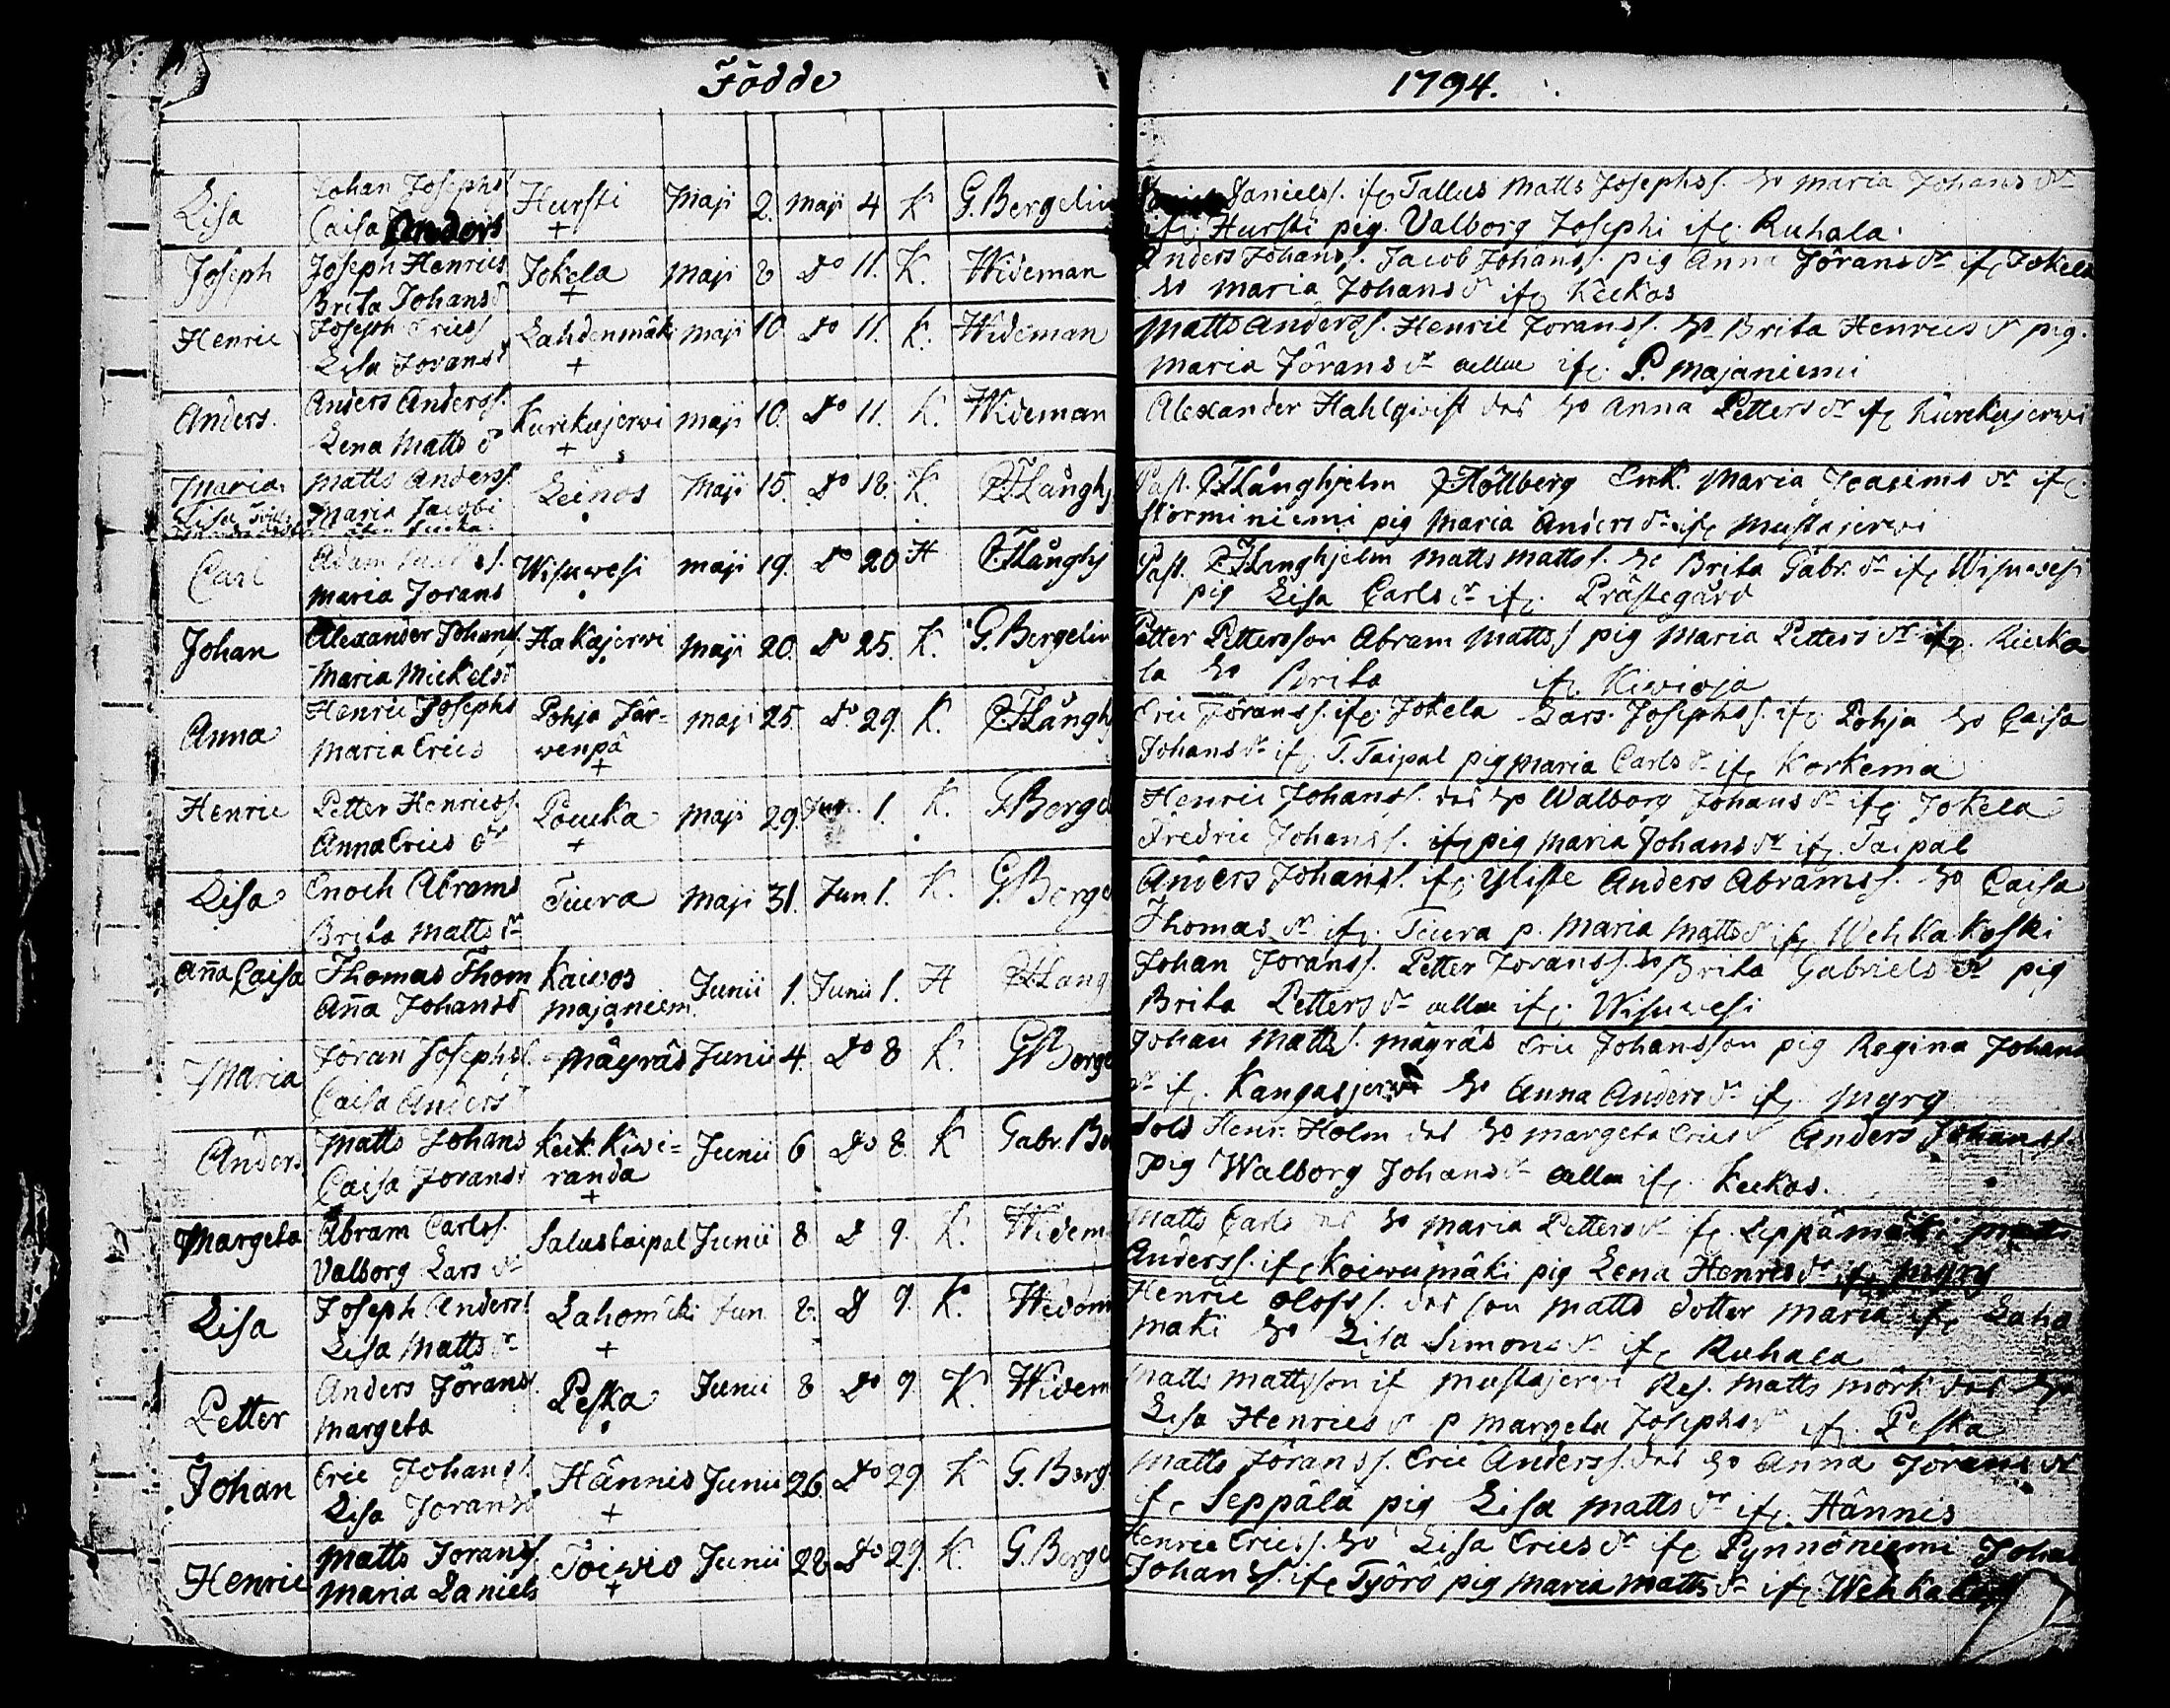 Födde 1794.
Lisa Johan Josephs Caisa Anders Hursti + Maji 2. Maji 4 K G. Bergelin
Daniels. ifr. Tallus Matts Josephss. h:o Maria Johans dr
ifr. Hursti pig. Valborg Josephi ifr. Ruhala.
Joseph Joseph Henrics Brita Johans d Jokela + Maji 8 Do 11. K. Wideman
Anders Johanss. Jacob Johanss. pig Anna Jörans dr ifr Jokela
h:o Maria Johans dr ifr Keckos
Henric Joseph Erics Lisa Jorans d Lahdenmäki + Maji 10 Do 11. K. Wideman
Matts Anderss. Henric Joranss. h:o Brita Henrics dr pig.
Maria Jörans dr allae ifr. P. Majaniemi
Anders. Anders Anderss. Lena Matts d Kurikajerwi + Maji 10. Do 11. K. Wideman
Alexander Hahlqwist des h:o Anna Petters dr ifr Kurikajerwi
Maria Lisa Matts Anderss. Maria Jacobi Leinos Maji 15. Do 18. K P.T.Långhj
Past. P.T.Långhjelm J. Höllberg Enk. Maria Joacims dr ifr.
Storminiemi pig Maria Anders dr ifr Mustajerwi
Carl Adam Maria Jorans Wisuwesi Maji 19. Do 20 H P.T.Långhj
Past. P.T.Langhjelm Matts Mattss. h:o Brita Gabr. dr ifr Wisuwesi
pig Lisa Carls dr ifr. Prästegård
Johan Alexander Johans. Maria Mickels d Hakajerwi Maji 20. Do 25. K. G. Bergelin
Petter Pettersson Abram Mattss pig Maria Petters dr ifr. Kecka
la h:o Brita ifr. Kiwioja
Anna Henric Josephs Maria Erics Pohja Jär= wenpä + Maji 25. Do 29. K. P.T.Långh
Eric Jöranss. ifr. Jokela Lars Josephss. ifr. Pohja h:o Caisa
Johans dr ifr. T. Taipal pig Maria Carls dr ifr Korkema
Henric Petter Henricss. Anna Erics dr Poucka + Maji 29. Jun. 1. K. G. Berge
Henric Johanss. des h:o Walborg Johans dr ifr. Jokela
Fredric Johanss. ifr pig Maria Johans dr ifr. Taipal
Lisa Enoch Abrams Brita Matts dr Tiura Maji 31. Jun 1. K. G. Berge
Anders Johanss. ifr. Yliste Anders Abramss. h:o Caisa
Thomas dr ifr. Tiura p. Maria Matts dr ifr Wehkakoski
Añacaisa Thomas Thom Aña Johans d Kaiwos Majaniem. Junii 1. Junii 1. H P.T.Lang
Johan Joranss. Petter Joranss. h:o Brita Gabriels dr pig
Brita Petters dr allae ifr. Wisuwesi
Maria Joran Josephs. Caisa Anders d Mäyräs Junii 4. Do 8 K. G. Berge
Johan Mattss. Mäyräs Eric Johansson pig Regina Johans
dr ifr. Kangasjerwi h:o Anna Anders dr ifr. Myry
Anders Matts Johans Caisa Jorans d Keck. Kiwi= randa + Junii 6 Do 8. K Gabr. Be
Sold Henr. Holm des h:o Margeta Erics dr Anders Johanss.
pig Walborg Johans dr allae ifr. Keckos.
Margeta Abram Carlss. Valborg Lars dr Salustaipal Junii 8 D 9. K. Widem
Matts Carls des h:o Maria Petters dr ifr. Leppämäki Matts
Anderss. ifr Koiwumäki pig Lena Henrics dr ifr Myry
Lisa Joseph Anderss. Lisa Matts dr Lahomäki + Jun 8. D 9. K. Widem
Henric Olofss. des son Matts dotter Maria ifr Laho
mäki h:o Lisa Simons dr ifr Ruhala
Petter Anders Jörans. Margeta Peska Junii 8 Do 9 K. Widem
Matts Mattsson if Mustajerwi Res. Matts Mörk des h:o
Lisa Henrics dr p Margeta Josephs dr ifr. Peska
Johan Eric Johanss. Lisa Jorans d Hännis + Junii 26. Do 29. K G. Berg
Matts Jöranss. Eric Anderss. des h:o Anna Jorans dr
ifr Seppälä pig Lisa Matts dr ifr. Hännis
Henric Matts Joranss. Maria Daniels Toiwio + Junii 28. Do 29. K. G. Berge
Henric Ericss. h:o Lisa Erics dr ifr Pynnöniemi Johan
Johanss. ifr Työrö pig Maria Matts dr ifr Wehkakos